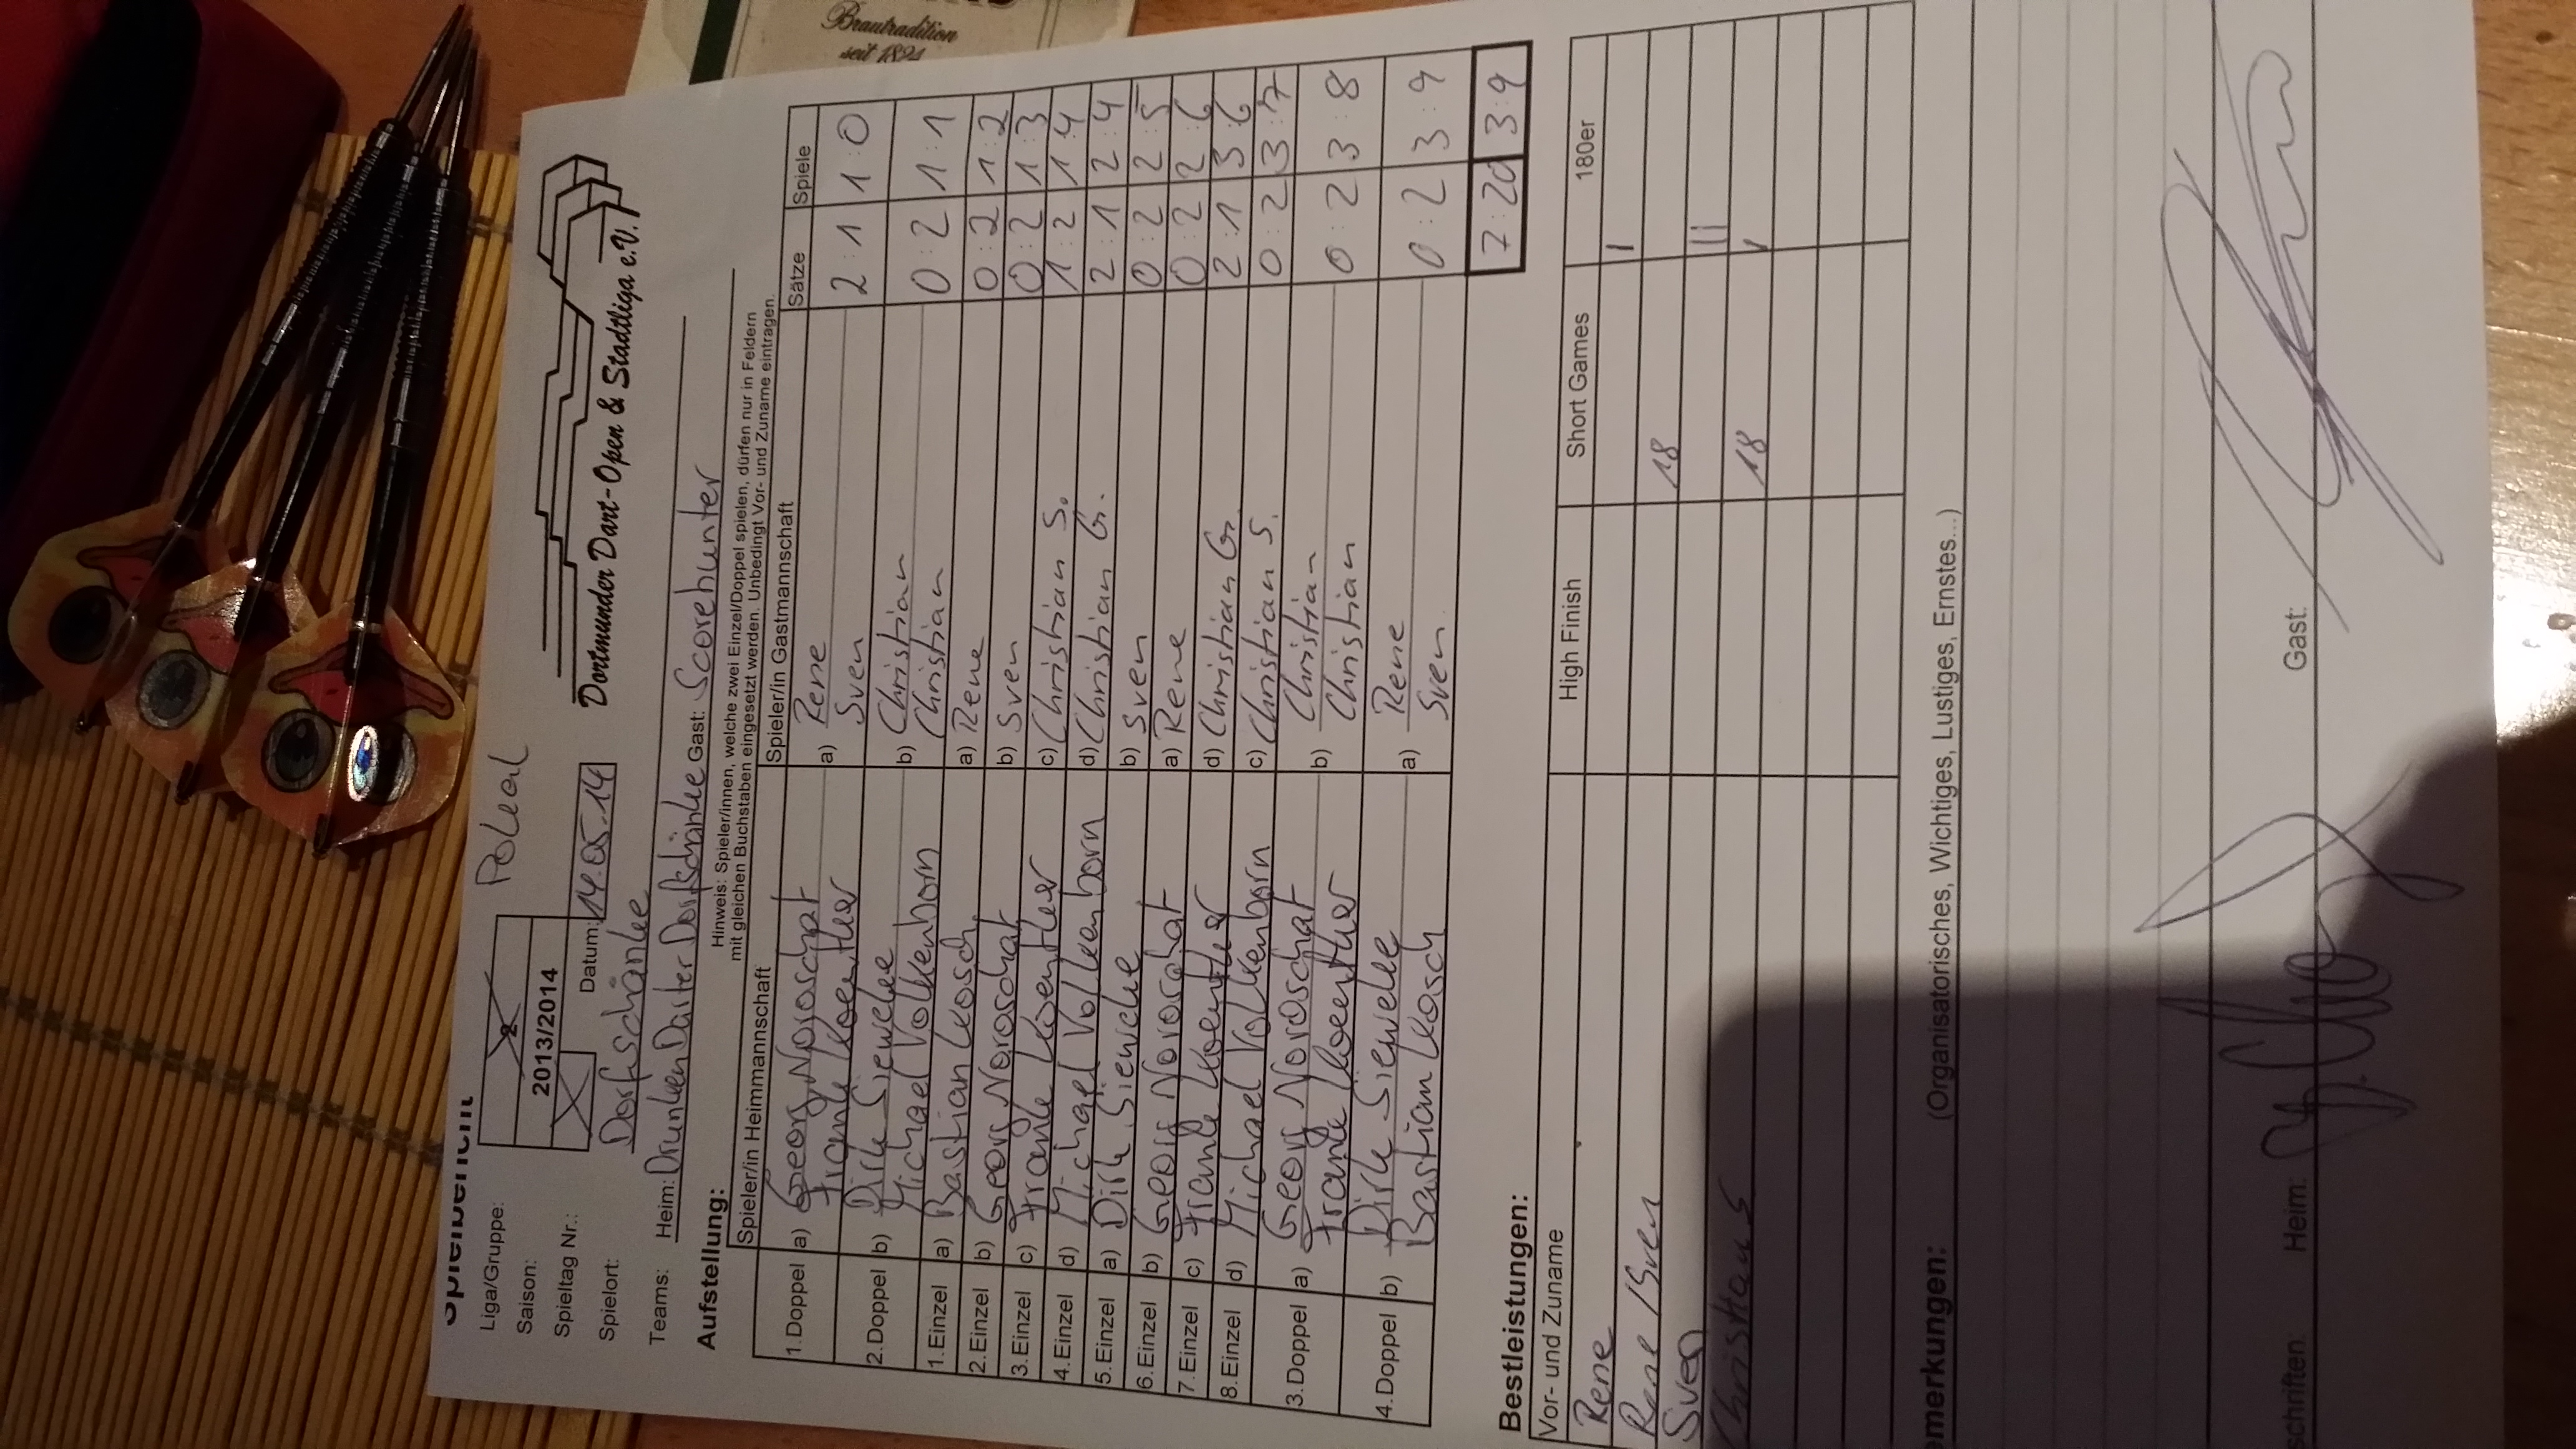 Brautradition
seit 1894
Spielbericht
Pokal
Liga/Gruppe: 2
Saison: 2013/2014
Spieltag Nr.: Datum: 14.05.14
Spielort: Dorfschänke
Dortmunder Dart-Open & Stadtliga e.V.
Teams: Heim: Drunken Darter Dorfschänke Gast: Scorehunter
Aufstellung:
Hinweis: Spieler/innen, welche zwei Einzel/Doppel spielen, dürfen nur in Feldern
mit gleichen Buchstaben eingesetzt werden. Unbedingt Vor- und Zuname eintragen.
Spieler/in Heimmannschaft Spieler/in Gastmannschaft Sätze Spiele
1.Doppel a) Georg Noroschat a) Rene 2:1 1:0
Frank Koenther Sven
2.Doppel b) Dirk Sieweke b) Christian 0:2 1:1
Michael Volkenborn Christian
1.Einzel a) Bastian Kosch a) Rene 0:2 1:2
2.Einzel b) Georg Noroschat b) Sven 0:2 1:3
3.Einzel c) Frank Koenther c) Christian S. 1:2 1:4
4.Einzel d) Michael Volkenborn d) Christian G. 2:1 2:4
5.Einzel a) Dirk Sieweke b) Sven 0:2 2:5
6.Einzel b) Georg Noroschat a) Rene 0:2 2:6
7.Einzel c) Frank Koenther d) Christian G. 2:1 3:6
8.Einzel d) Michael Volkenborn c) Christian S. 0:2 3:7
3.Doppel a) Georg Noroschat b) Christian 0:2 3:8
Frank Koenther Christian
4.Doppel b) Dirk Sieweke a) Rene 0:2 3:9
Bastian Kosch Sven
7:20 3:9
Bestleistungen:
Vor- und Zuname High Finish Short Games 180er
Rene I
Rene/Sven 18
Sven III
Christian S 18 I
emerkungen: (Organisatorisches, Wichtiges, Lustiges, Ernstes...)
schriften Heim: Gast: